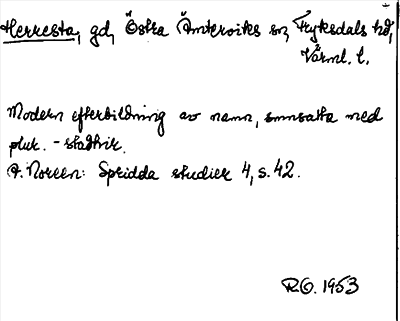 Herresta, gd, Östra Ämterviks sn, Fryksdals hd,
Värml. l.
Modern efterbildning av namn, smnsatta med
plur. -staðir.
A. Noreen: Spridda studier 4, s. 42.
R.O. 1953